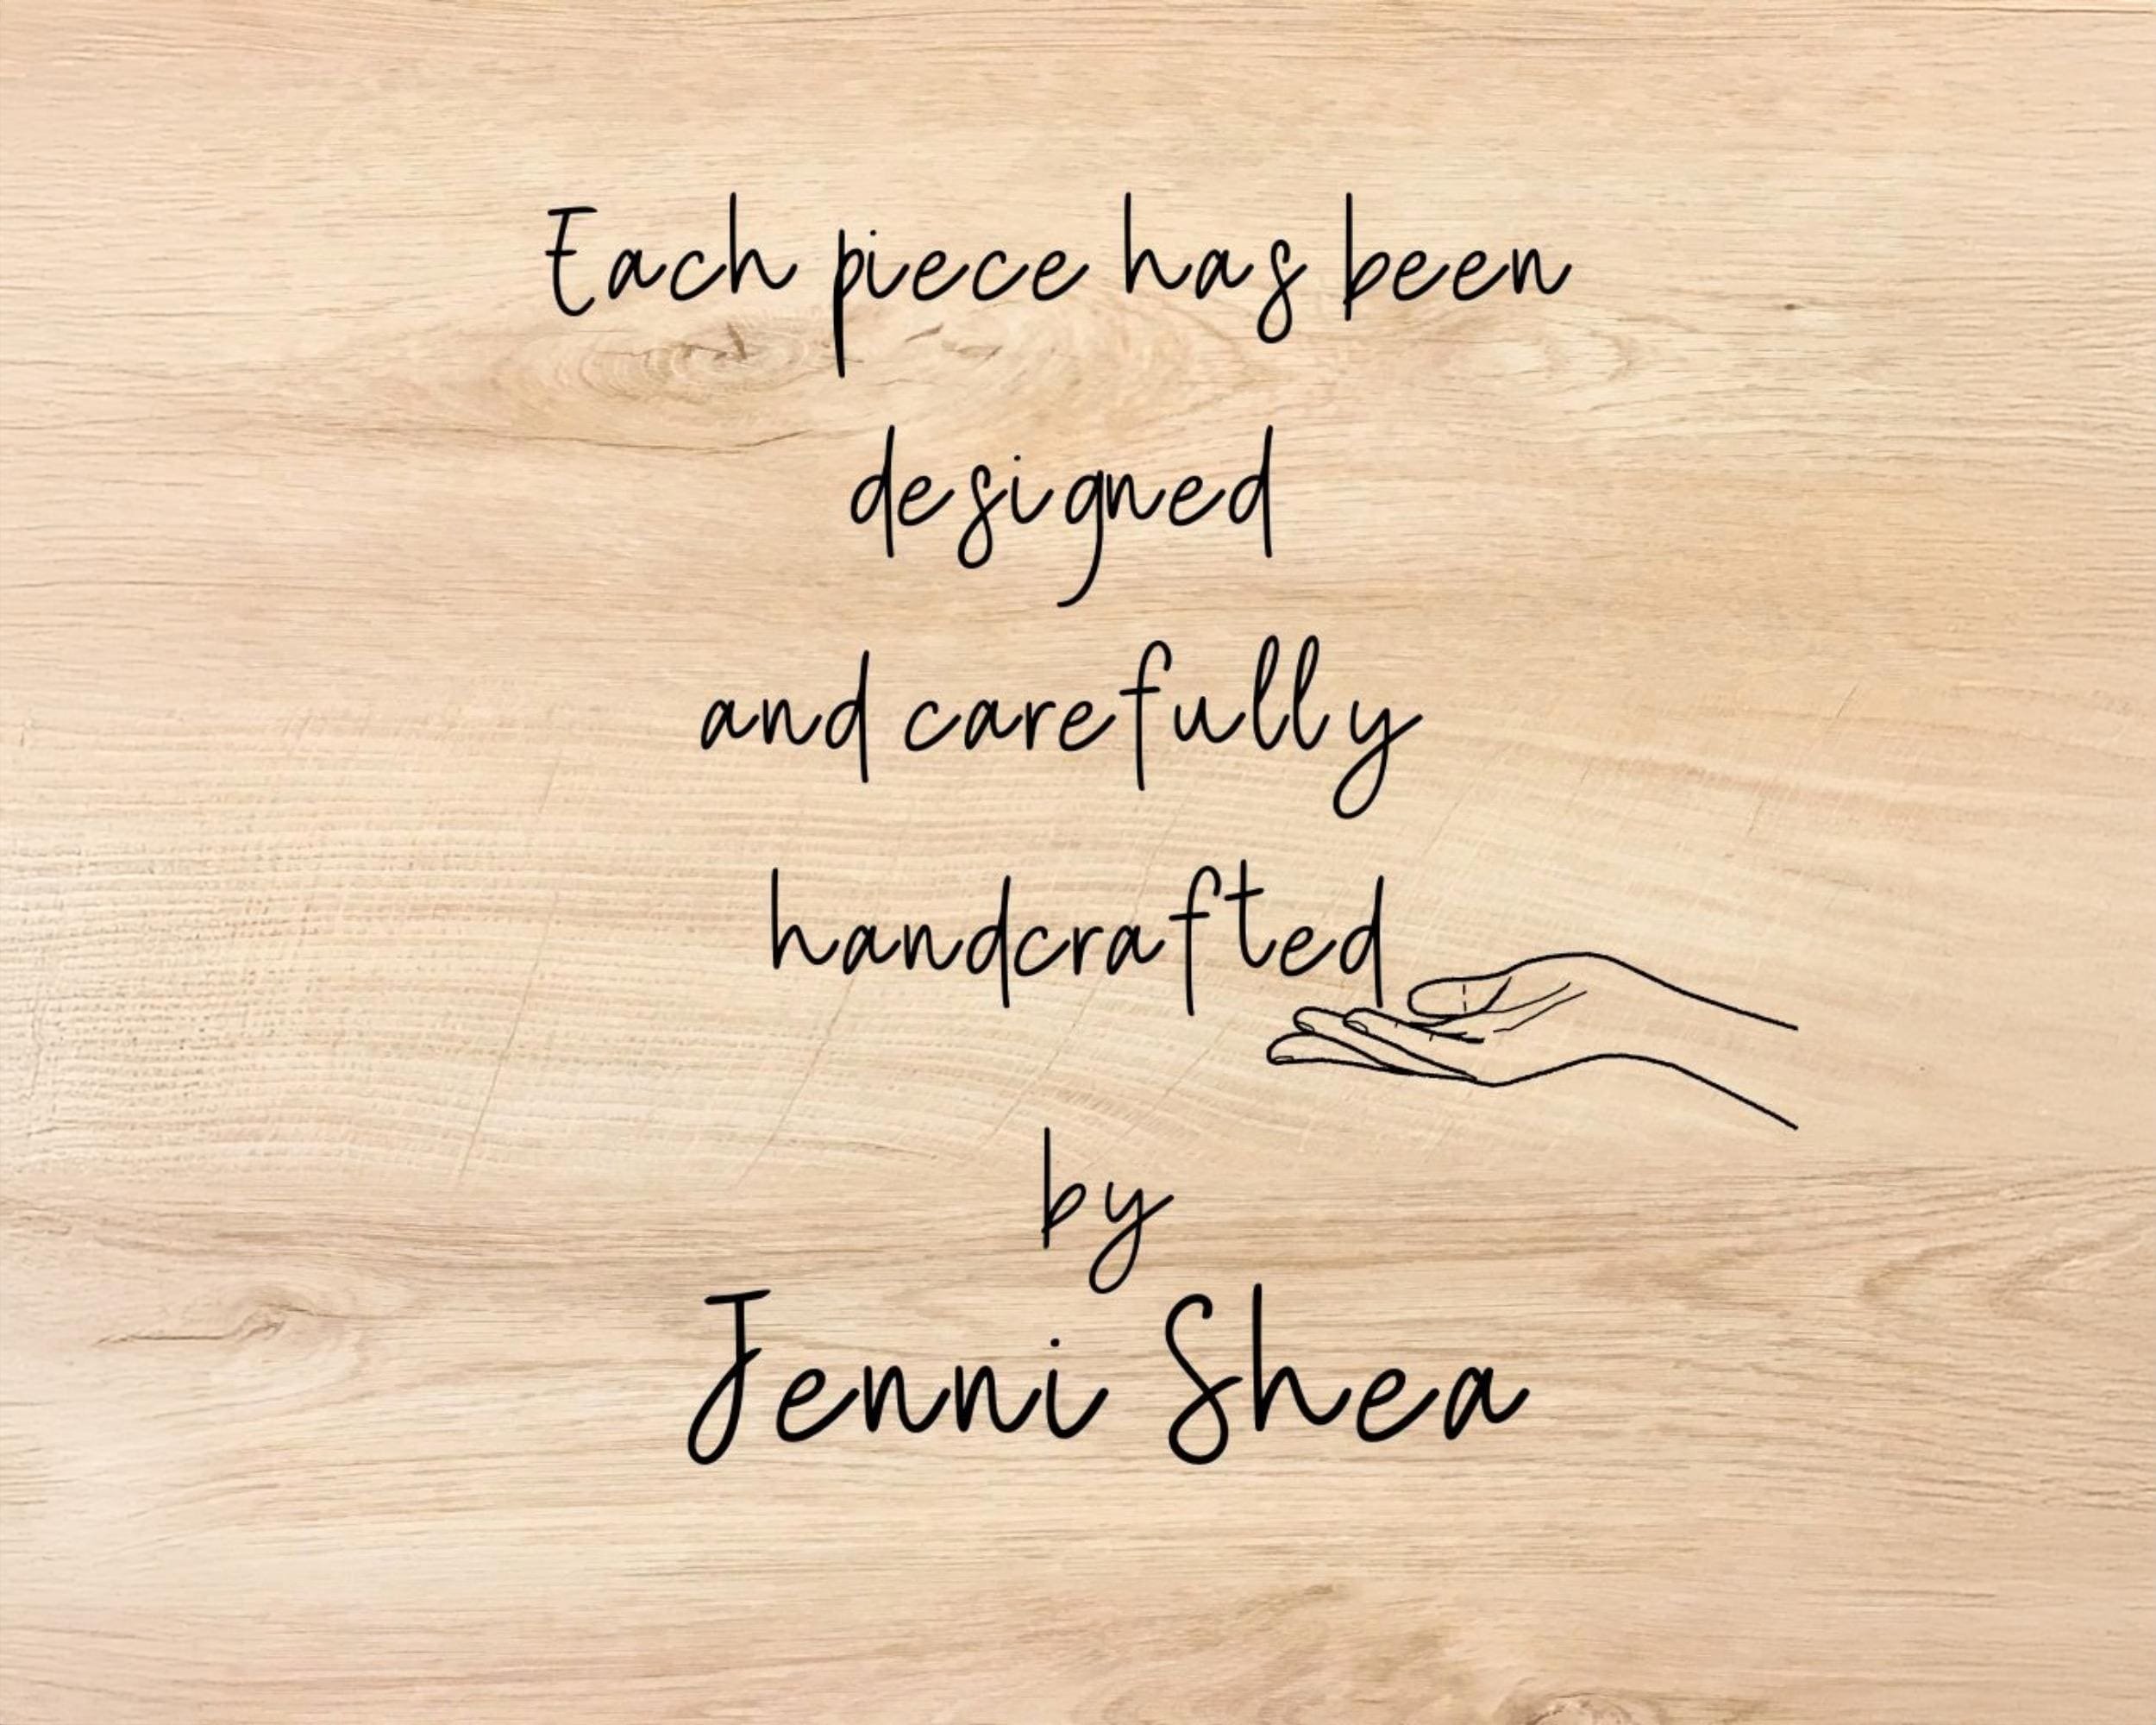 Each piece has been
designed
and carefully
handcrafted
by
Jenni Shea